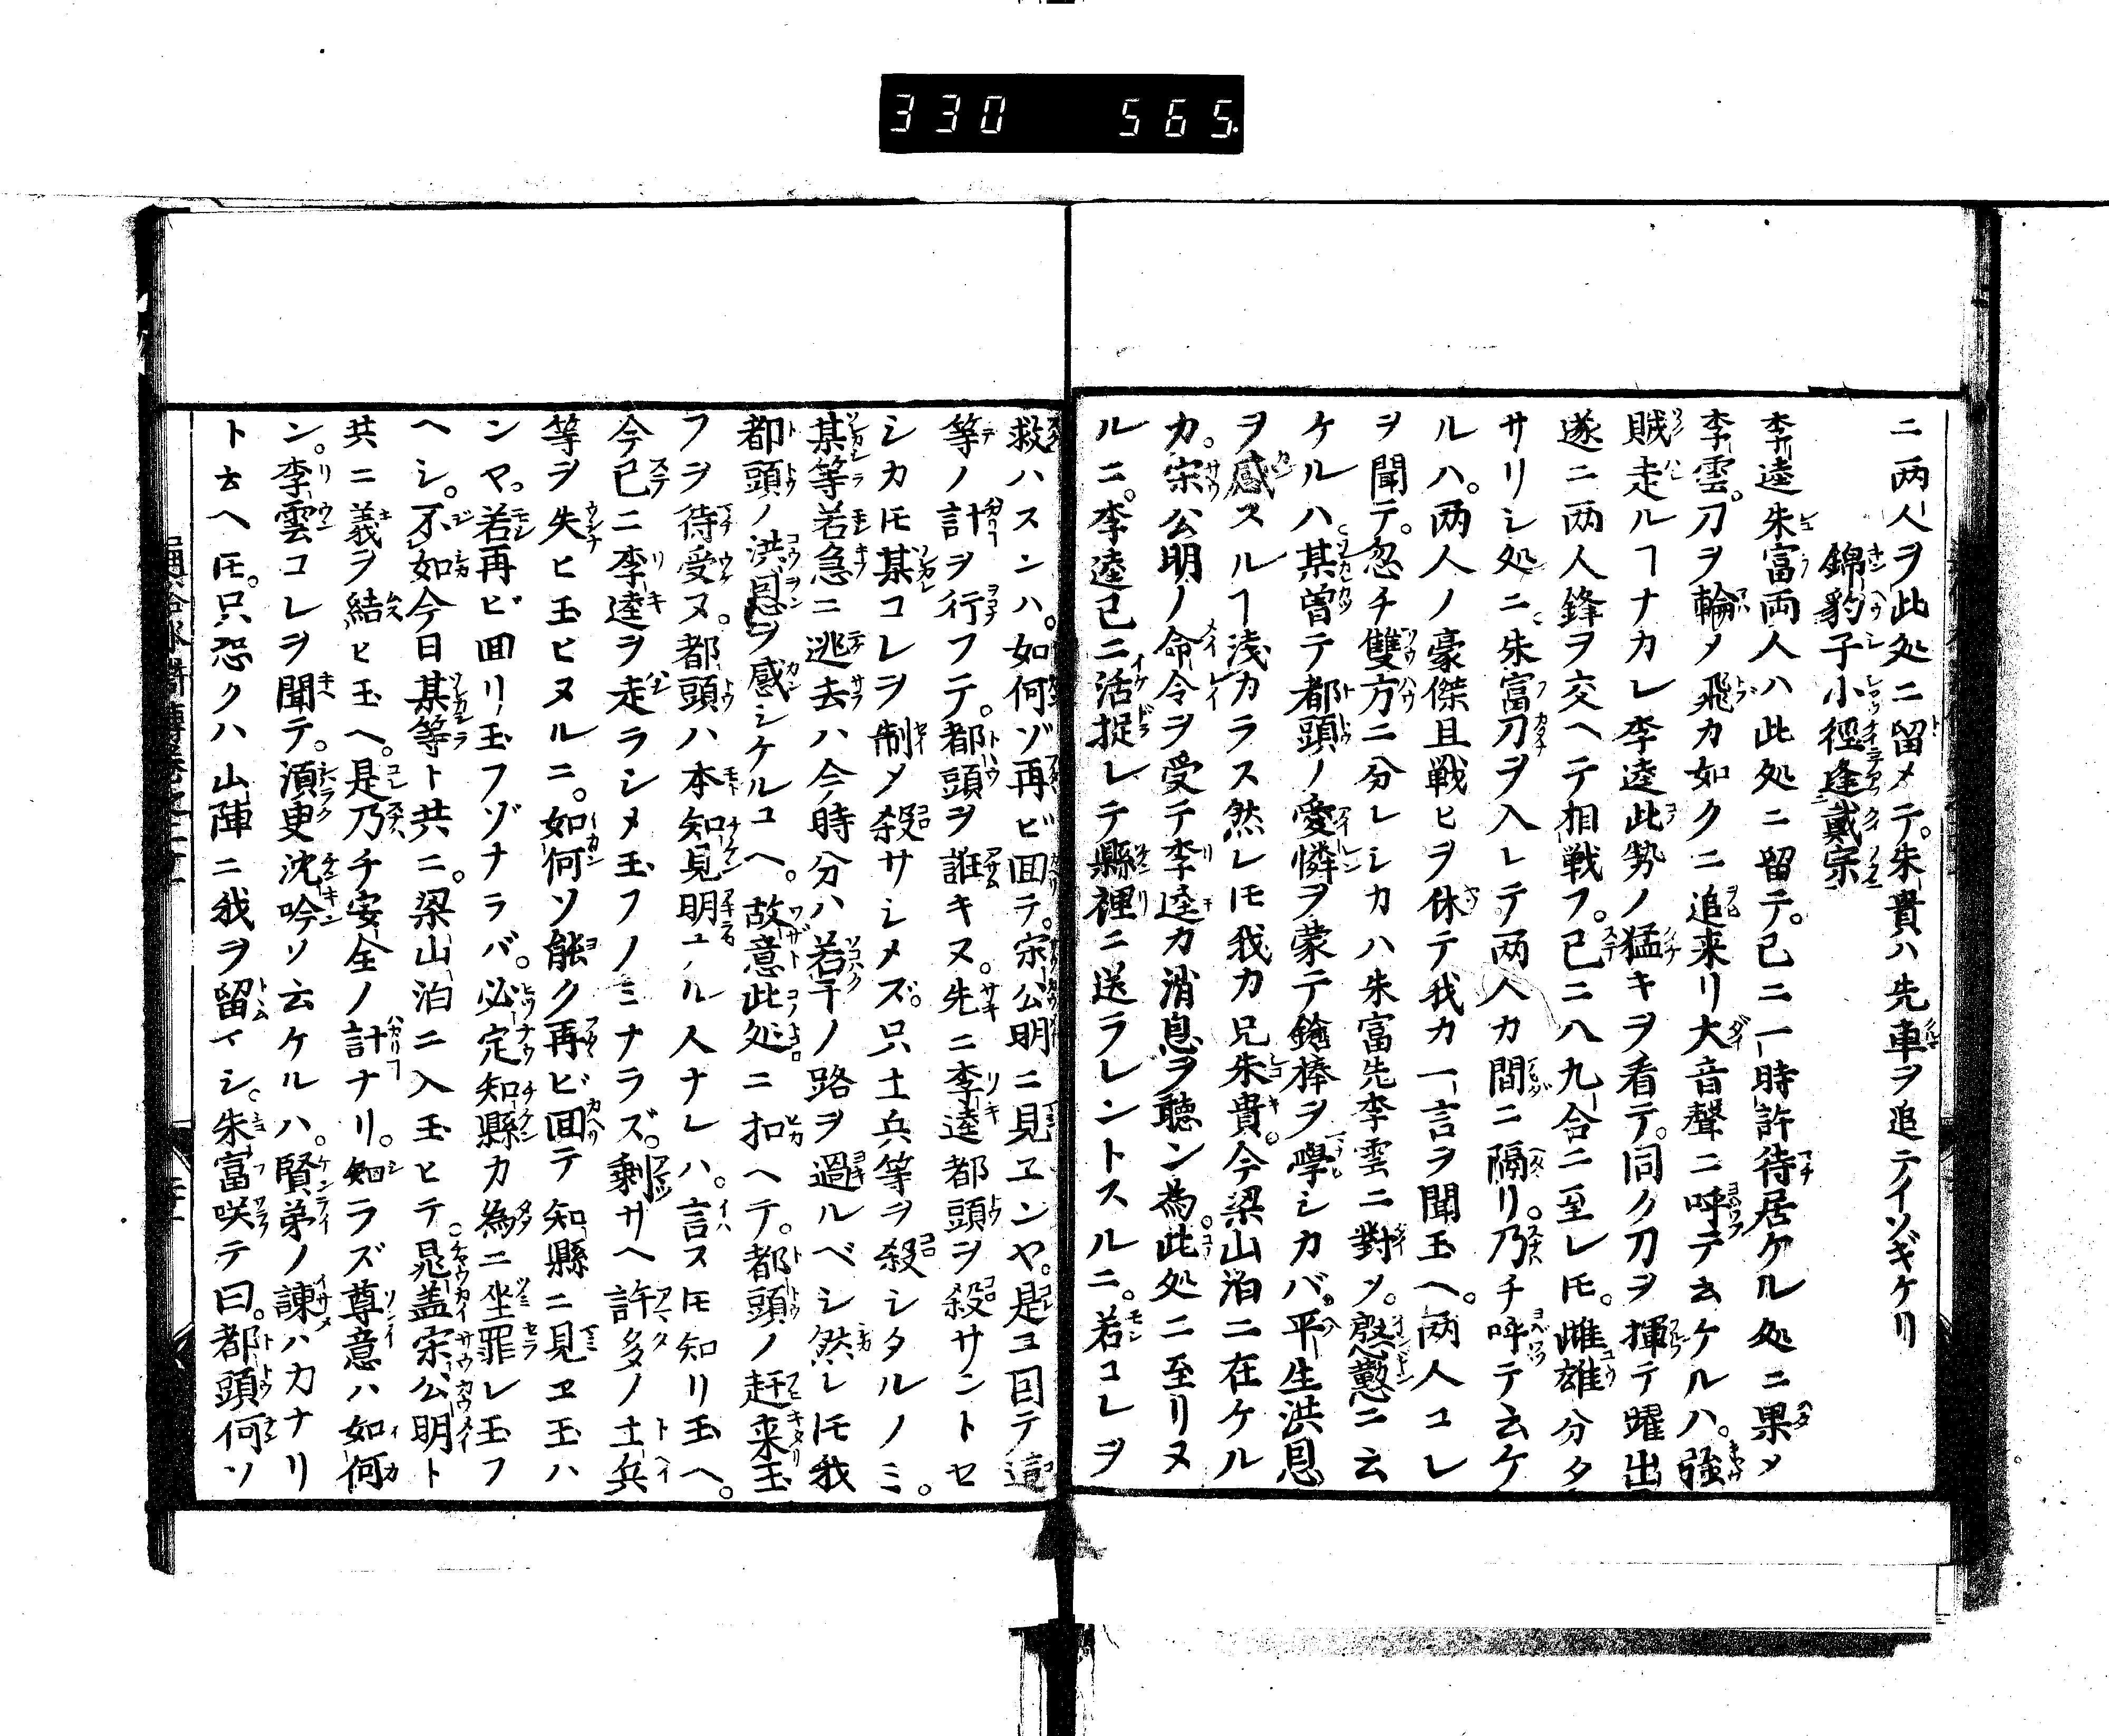 330 565.
ニ両人ヲ此処ニ留メテ。朱貴ハ先車ヲ追テイソギケリ
錦豹子小徑逢戴宗
李逵朱富両人ハ此処ニ留テ。已ニ一時許待居ケル処ニ果メ
李雲。刀ヲ輪メ飛カ如クニ追来リ大音聲ニ呼テ云ケルハ。強
賊走ルヿナカレ李逵此勢ノ猛キヲ看テ。同ク刀ヲ揮テ躍出
遂ニ両人鋒ヲ交ヘテ相戦フ。已ニ八九合ニ至レ𪜈。雌雄分タ
サリシ処ニ。朱富刀ヲ入レテ両人カ間ニ隔リ。乃チ呼テ云ケ
ルハ。両人ノ豪傑且戦ヒヲ休テ我カ一言ヲ聞玉ヘ。両人コレ
ヲ聞テ。忽チ雙方ニ分レシカハ朱富先李雲ニ對メ。慇懃ニ云
ケルハ。某曽テ都頭ノ愛憐ヲ蒙テ鎗棒ヲ學シカバ。平生洪恩
ヲ感スルヿ浅カラス然レ𪜈我カ兄朱貴。今梁山泊ニ在ケル
カ。宗公明ノ命令ヲ受テ李逵カ消息ヲ聴ン為。此処ニ至リヌ
ルニ。李逵已ニ活捉レテ縣裡ニ送ラレントスルニ。若コレヲ
救ハスンハ。如何ゾ再ビ回テ。宗公明ニ見エンヤ。是ヨ回テ這
等ノ計ヲ行フテ。都頭ヲ誰キヌ。先ニ李逵都頭ヲ殺サントセ
シカ𪜈某コレヲ制メ殺サシメズ。只土兵等ヲ殺シタルノミ。
某等若急ニ逃去ハ今時分ハ若干ノ路ヲ過ルベシ然レ𪜈我
都頭ノ洪恩ヲ感シケルユヘ。故意此処ニ扣ヘテ。都頭ノ赶来玉
フヲ待受ヌ。都頭ハ本知見明ュル人ナレハ。言ス𪜈知リ玉ヘ。
今已ニ李逵ヲ走ラシメ玉フノミナラズ。剰サヘ許多ノ土兵
等ヲ失ヒ玉ヒヌルニ。如何ソ能ク再ビ回テ知縣ニ見ヱ玉ハ
ンヤ。若再ビ回リ玉フゾナラバ。必定知縣カ為ニ坐罪レ玉フ
ヘシ。不如今日某等ト共ニ。梁山泊ニ入玉ヒテ。晁盖宗公明ト
共ニ義ヲ結ヒ玉ヘ。是乃チ安全ノ計ナリ。知ラズ尊意ハ如何
ン。李雲コレヲ聞テ。湏更沈吟ソ云ケルハ。賢弟ノ諌ハカナリ
ト云ヘ𪜈。只恐クハ山陣ニ我ヲ留イシ。朱富咲テ曰。都頭何ソ